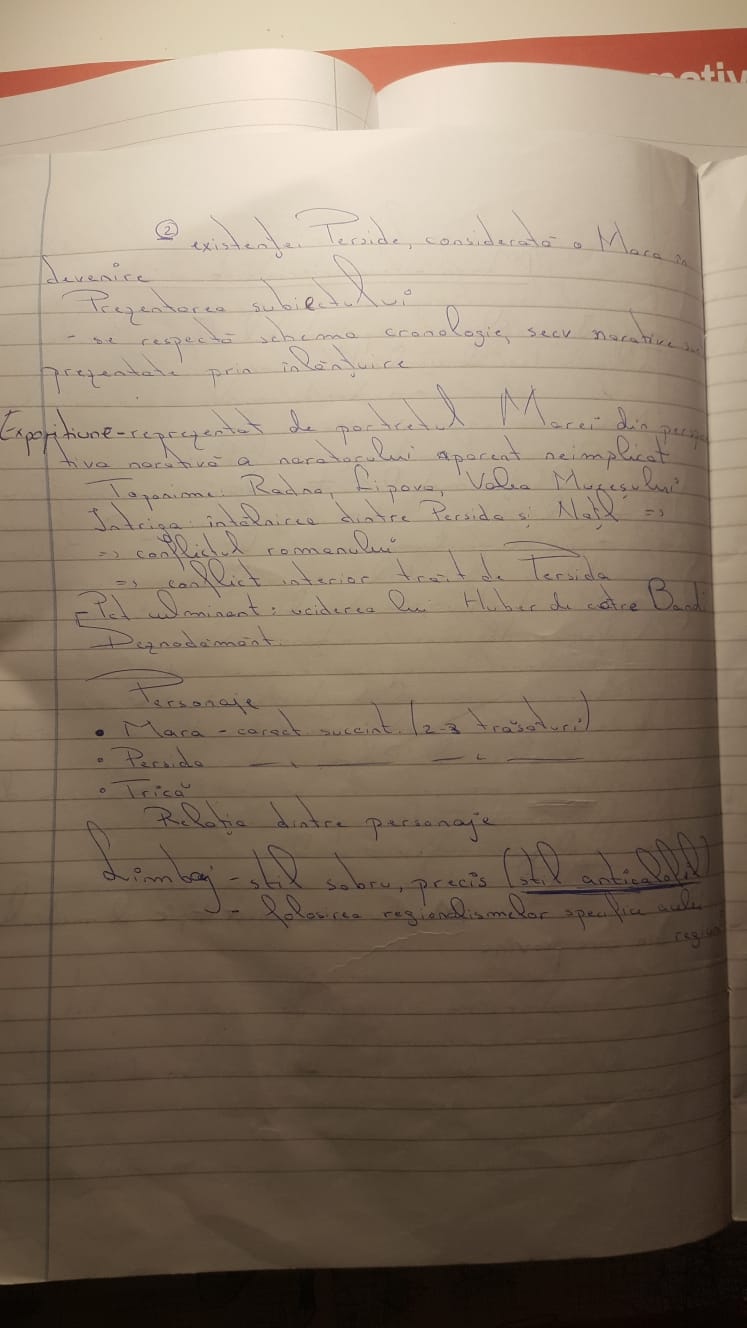 otiv
② existenței Perside, considerată o Mara în
devenire
Prezentarea subiectului
- se respectă schema cronologic, secv narative
prezentate prin înlănțuire
Expozițiune - reprezentat de portretul Marei din perspec
tiva narativă a naratorului aparent neimplicat
Toponime: Radna, Lipova, Valea Mureșului
Intriga: întâlnirea dintre Persida și Națl =>
=> conflictul romanului
=> conflict interior trait de Persida
Pct culminant: uciderea lui Huber de catre Bandi
Deznodământ.
Personaje
• Mara - caract succint. (2-3 trasaturi)
• Persida — " — — " —
• Trică
Relația dintre personaje
Limbaj - stil sobru, precis (stil anticalofil)
- folosirea regionalismelor specifice acelei
regiuni